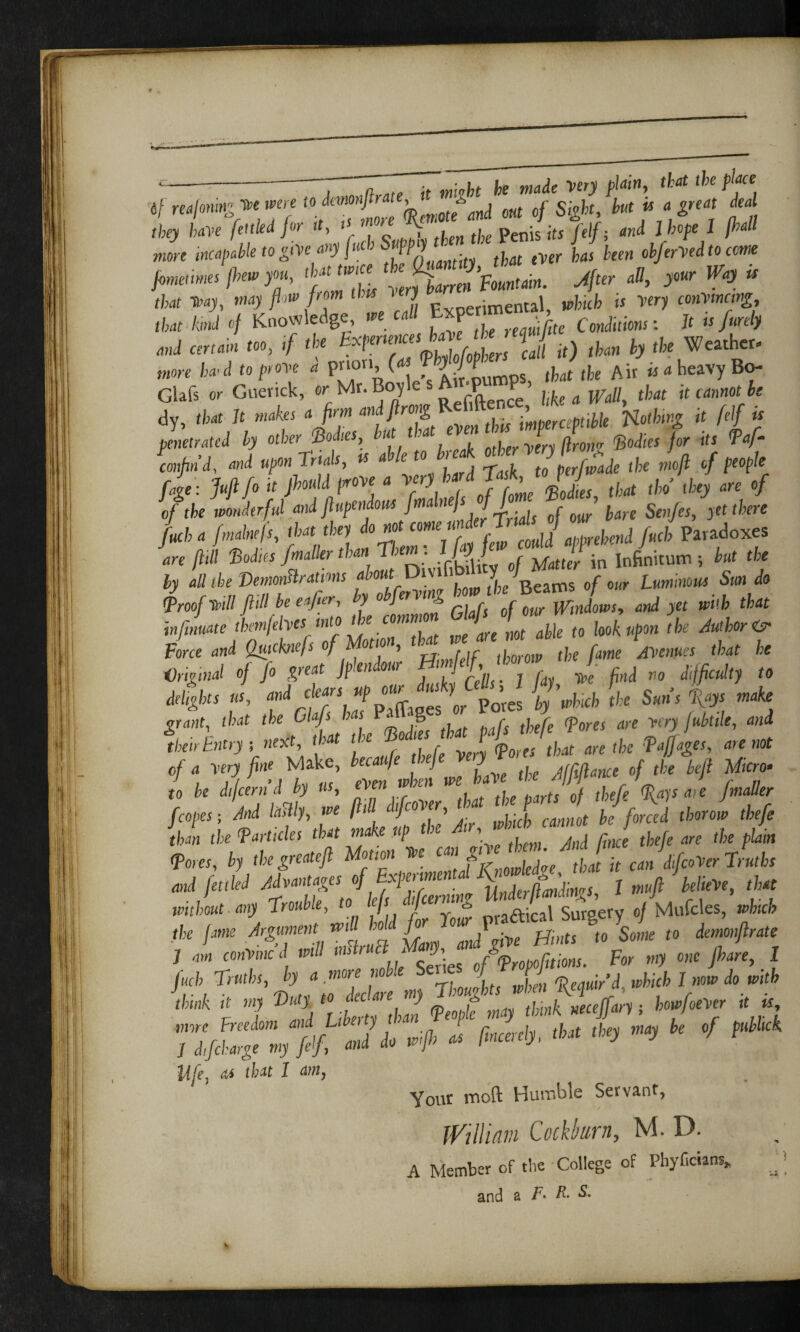 of reasoning we were to demonstrate, it might be made very plain, that the place
they have settled for it, is more Remote and out of Sight, but is a great deal
more incapable to give any such Supply then the Penis its self; and I hope I shall
sometimes shew you, that twice the Quantity, that ever has been observed to come
that way, may flow from this very barren Fountain. After all, your Way is
that kind of Knowledge, we call Experimental, which is very convincing,
and certain too, if the Experiences have the requisite Conditions: It is surely
more hard to prove a priori, (as Phylosophers call it) than by the Weather-
Glass or Guerick, or Mr. Boyle's Air-pumps, that the Air is a heavy Bo-
dy, that It makes a firm and strong Resistence, like a Wall, that it cannot be
penetrated by other Bodies, but that even this imperceptible Nothing it self is
confin'd, and upon Trials, is able to break other very strong Bodies for its Pas-
sage: Just so it should prove a very hard Task, to perswade the most of people
of the wonderful and stupendous smalness of some Bodies, that tho' they are of
such a smalness, that they do not come under Trials of our bare Senses, yet there
are still Bodies smaller than Them: I say few could apprehend such Paradoxes
by all the Demonstrations about Divisibility of Matter in Infinitum; but the
Proof will still be easier, by observing how the Beams of our Luminous Sun do
insinuate themselves into the common Glass of our Windows, and yet with that
Force and Quickness of Motion, that we are not able to look upon the Author &
Original of so great splendour Himself, thorow the same Avenues that he
delights us, and clears up our dusky Cells; I say, we find no difficulty to
grant, that the Glass has Passages or Pores by which the Sun's Rays make
their Entry; next, that the Bodies that pass these Pores are very subtile, and
of a very fine Make, because these very Pores that are the Passages, are not
to be discern'd by us, even when we have the Assistance of the best Micro-
scopes; And lastly, we still discover, that the parts of these Rays are smaller
than the Particles that make up the Air, which cannot be forced thorow these
Pores, by the greatest Motion we can give them. And since these are the plain
and settled Advantages of Experimental Knowledge, that it can discover Truths
without any Trouble, to less discerning Understandings, I must believe, that
the same Argument will hold for Your practical Surgery of Muscles, which
I am convinc'd will instruct Many, and give Hints to Some to demonstrate
such Truths, by a more noble Series of Propositions. For my one share, I
think it my Duty to declare my Thoughts when Requir'd, which I now do with
more Freedom and Liberty than People may think necessary; howsoever it is,
I discharge my self, and do wish as sincerely, that they may be of publick
Use, as that I am,
Your most Humble Servant,
William Cockburn, M. D.
A Member of the College of Physicians,
and a F. R. S.